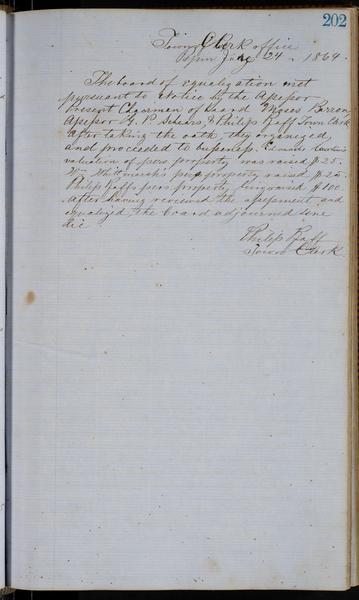 202
Town Clerk office
June 24 - 1864 -
The board of equalization met
pursuant to Notice by the Assessor
Present Chairman of Board Moses Barron,
Assessor G. P. & Philip Raff Town Clerk
After taking the oath, they organized,
and proceeded to business,
valuation of pers property was raised $25.
Wm Whitmarsh's pers property raised $25.
Philip Raffs pers property being raised $100.
After having reviewed the assessment, and
equalized the board adjourned sine
die
Philip Raff
Town Clerk